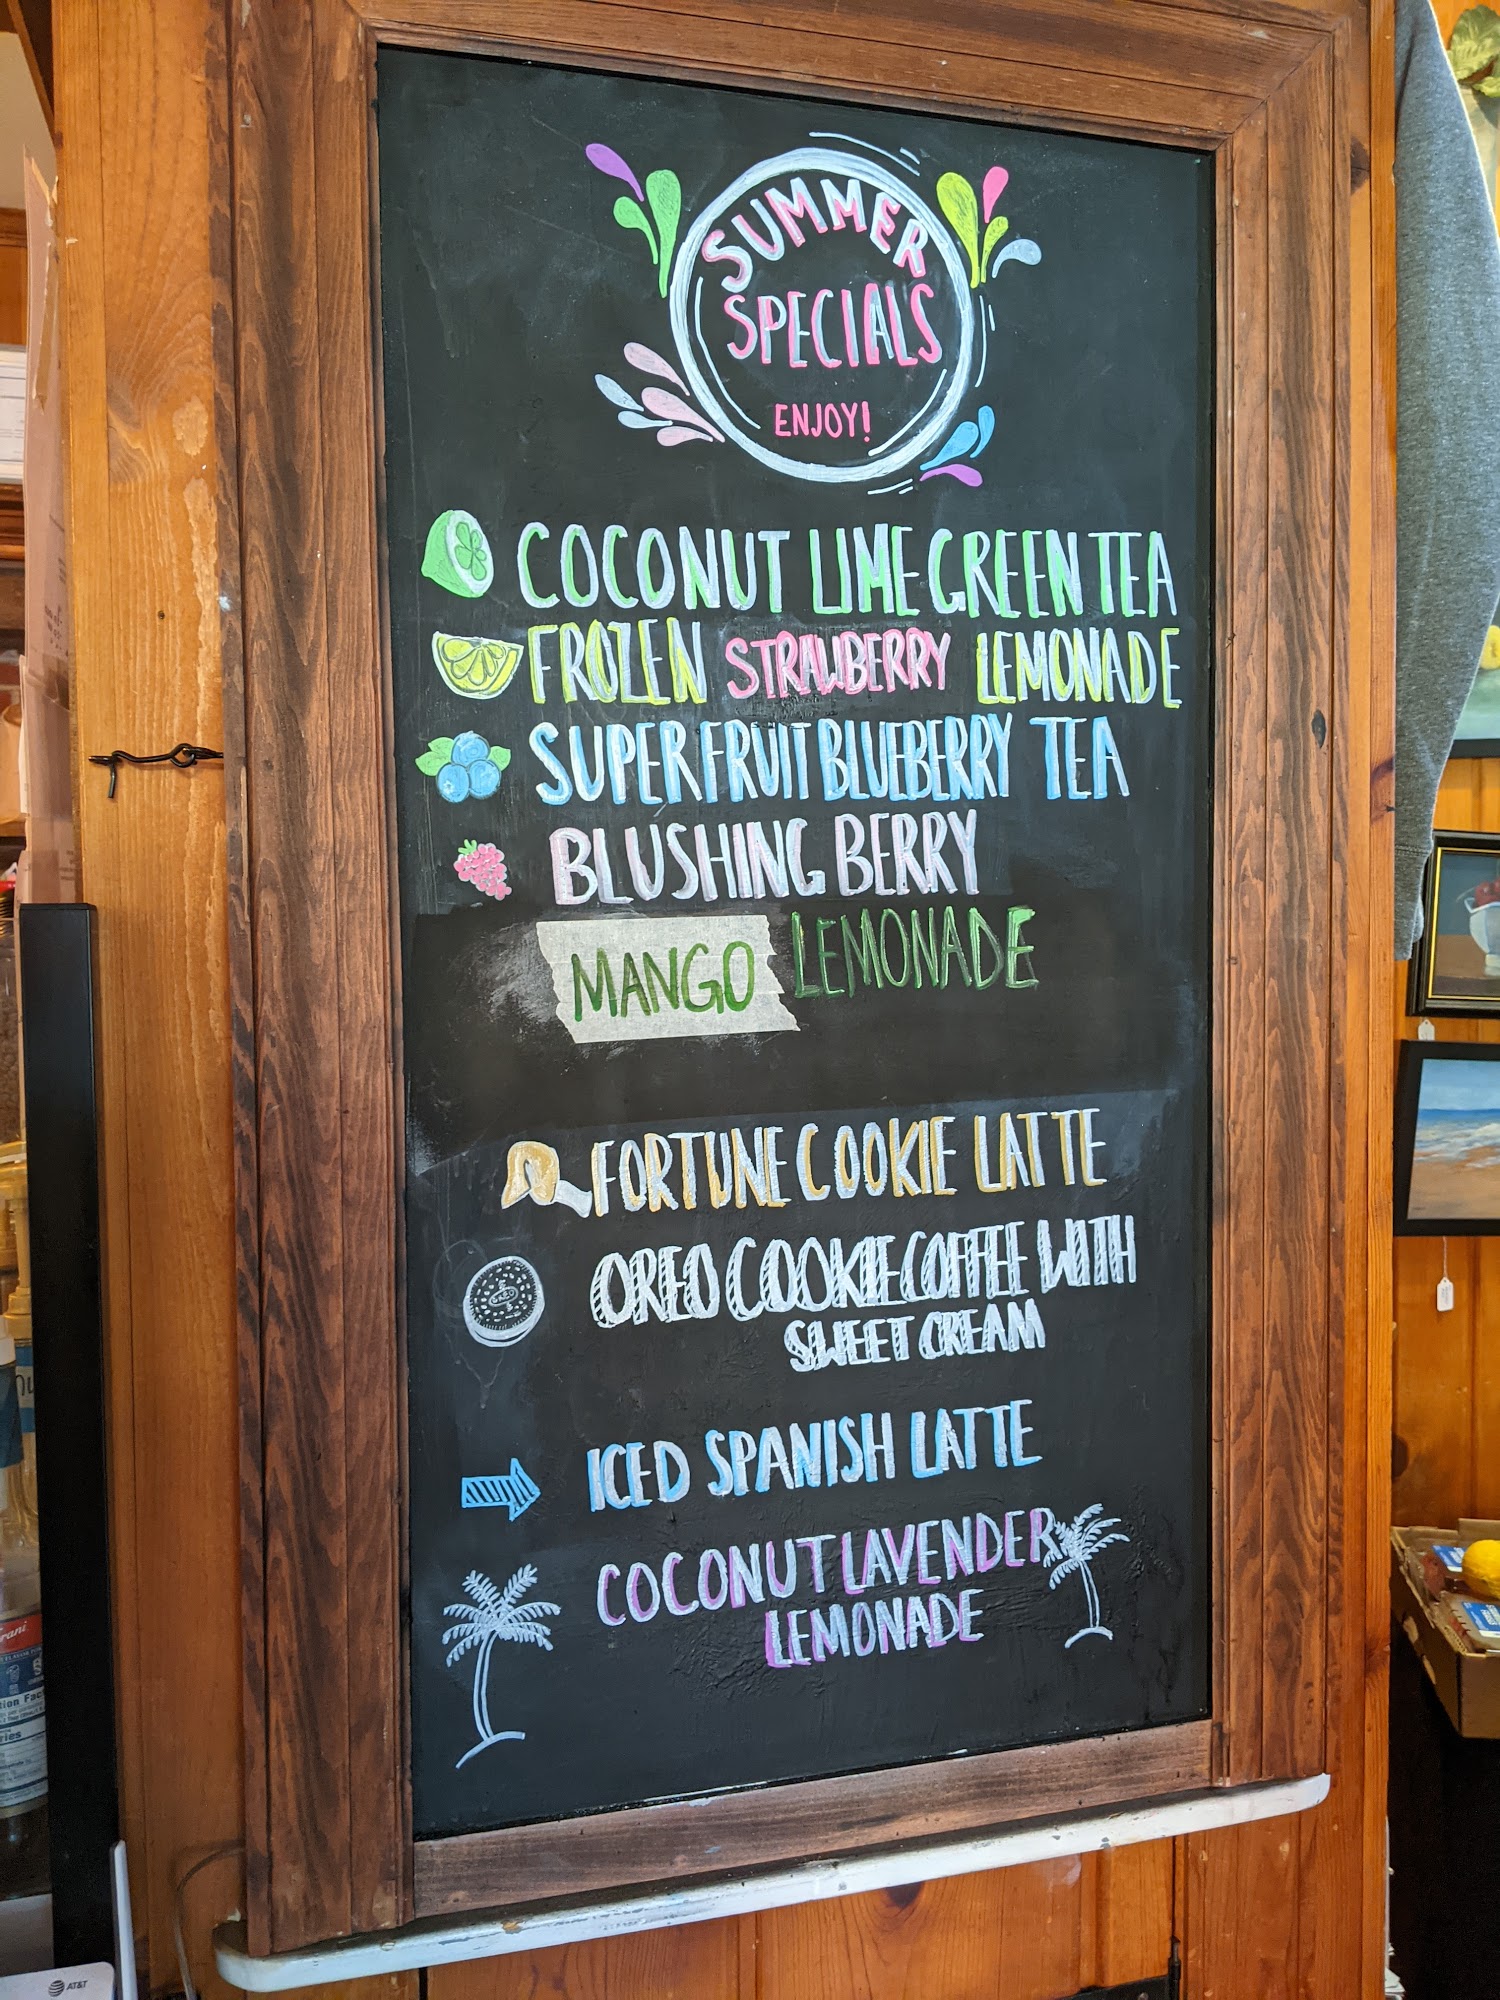 SUMMER
SPECIALS
ENJOY!
COCONUT LIME GREEN TEA
FROZEN STRAWBERRY LEMONADE
SUPERFRUIT BLUEBERRY TEA
BLUSHING BERRY
MANGO LEMONADE
FORTUNE COOKIE LATTE
OREO COOKIE COFFEE WITH
SWEET CREAM
OREO
ICED SPANISH LATTE
COCONUT LAVENDER
LEMONADE
AT&T